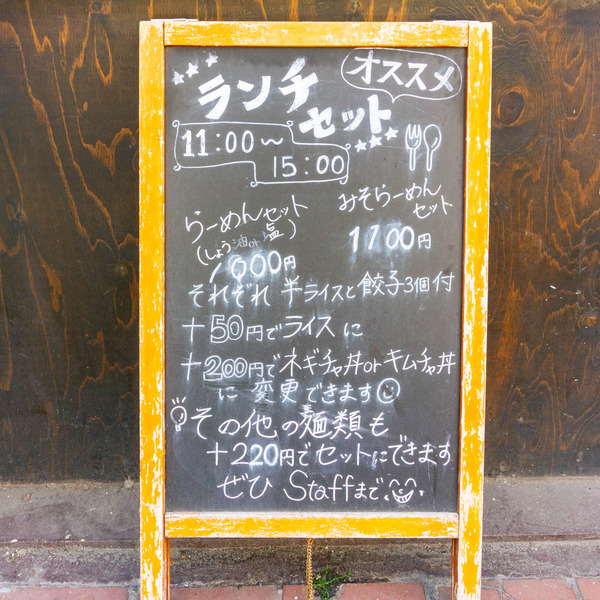 オススメ
ランチ
セット
11:00～
15:00
らーめんセット
(しょう油or塩)
1000円
みそらーめん
セット
1100円
それぞれ 半ライスと餃子3個付
+50円でライスに
+200円でネギチャ丼orキムチャ丼
に変更できます
その他の麺類も
+220円でセットにできます
ぜひ Staffまで